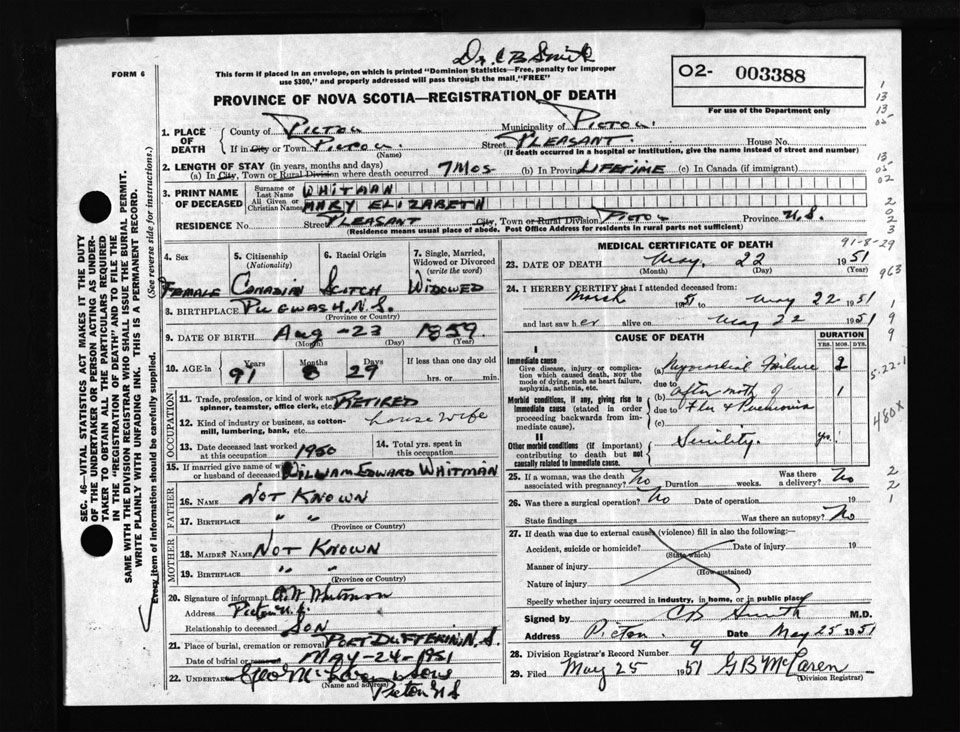 Dr. C B Smith
FORM 6
This form if placed in an envelope, on which is printed "Dominion Statistics—Free, penalty for improper
use $300," and properly addressed will pass through the mail, "FREE"
O2- 003388
For use of the Department only
PROVINCE OF NOVA SCOTIA—REGISTRATION OF DEATH
1. PLACE OF DEATH
County of PICTOU Municipality of PICTOU
If in City or Town PICTOU. (Name) Street PLEASANT House No.
(If death occurred in a hospital or institution, give the name instead of street and number)
2. LENGTH OF STAY (in years, months and days)
(a) In City, Town or Rural Division where death occurred 7 MOS (b) In Province LIFETIME (c) In Canada (if immigrant)
3. PRINT NAME OF DECEASED
Surname or Last Name WHITMAN
All Given or Christian Names MARY ELIZABETH
RESIDENCE No. Street PLEASANT City, Town or Rural Division PICTOU Province N.S.
(Residence means usual place of abode. Post Office Address for residents in rural parts not sufficient)
4. Sex FEMALE
5. Citizenship (Nationality) CANADIAN
6. Racial Origin SCOTCH
7. Single, Married, Widowed or Divorced (write the word) WIDOWED
8. BIRTHPLACE PUGWASH. N.S. (Province or Country)
9. DATE OF BIRTH AUG - 23 1859 (Month) (Day) (Year)
10. AGE IN Years 91 Months 8 Days 29 If less than one day old hrs. or min.
OCCUPATION
11. Trade, profession, or kind of work as spinner, teamster, office clerk, etc. RETIRED
12. Kind of industry or business, as cotton-mill, lumbering, bank, etc. House Wife
13. Date deceased last worked at this occupation 1950
14. Total yrs. spent in this occupation
15. If married give name of wife or husband of deceased WILLIAM EDWARD WHITMAN
FATHER
16. Name NOT KNOWN
17. Birthplace " " (Province or Country)
MOTHER
18. Maiden Name NOT KNOWN
19. Birthplace " " (Province or Country)
20. Signature of informant Whitman
Address Pictou N.S.
Relationship to deceased SON
21. Place of burial, cremation or removal PORT DUFFERIN, N.S.
Date of burial or removal MAY-24-1951
22. Undertaker Geo Sons
(Name and address) Pictou N S
MEDICAL CERTIFICATE OF DEATH
91-8-29
23. DATE OF DEATH May. 22 1951
(Month) (Day) (Year)
24. I HEREBY CERTIFY that I attended deceased from:
March 1951 to May 22 1951
and last saw her alive on May 22 1951
CAUSE OF DEATH
DURATION
YRS. MOS. DYS.
I
Immediate cause
Give disease, injury or complication which caused death, not the mode of dying, such as heart failure, asphyxia, asthenia, etc.
(a) Myocardial Failure 2
due to
Morbid conditions, if any, giving rise to immediate cause (stated in order proceeding backwards from immediate cause).
(b) after 1
due to Flu & Pneumonia
(c)
II
Other morbid conditions (if important) contributing to death but not causally related to immediate cause.
Senility. yrs
25. If a woman, was the death associated with pregnancy? No Duration weeks. Was there a delivery? No
26. Was there a surgical operation? No Date of operation 19
State findings Was there an autopsy? No
27. If death was due to external causes (violence) fill in also the following:
Accident, suicide or homicide? (State which) Date of injury 19
Manner of injury (How sustained)
Nature of injury
Specify whether injury occurred in industry, in home, or in public place
Signed by CB Smith M.D.
Address Pictou. Date May 25 1951
28. Division Registrar's Record Number 9
29. Filed May 25 1951 G B McLaren
(Division Registrar)
SEC. 46—VITAL STATISTICS ACT MAKES IT THE DUTY
OF THE UNDERTAKER OR PERSON ACTING AS UNDER-
TAKER TO OBTAIN ALL THE PARTICULARS REQUIRED
IN THE "REGISTRATION OF DEATH" AND TO FILE THE
SAME WITH THE DIVISION REGISTRAR WHO SHALL ISSUE THE BURIAL PERMIT.
WRITE PLAINLY WITH UNFADING INK. THIS IS A PERMANENT RECORD.
Every item of information should be carefully supplied. (See reverse side for instructions.)
1
13
13
05-
13
05-
02
2
0
2
3
963
1
9
9
5-22-1
480x
2
2
1